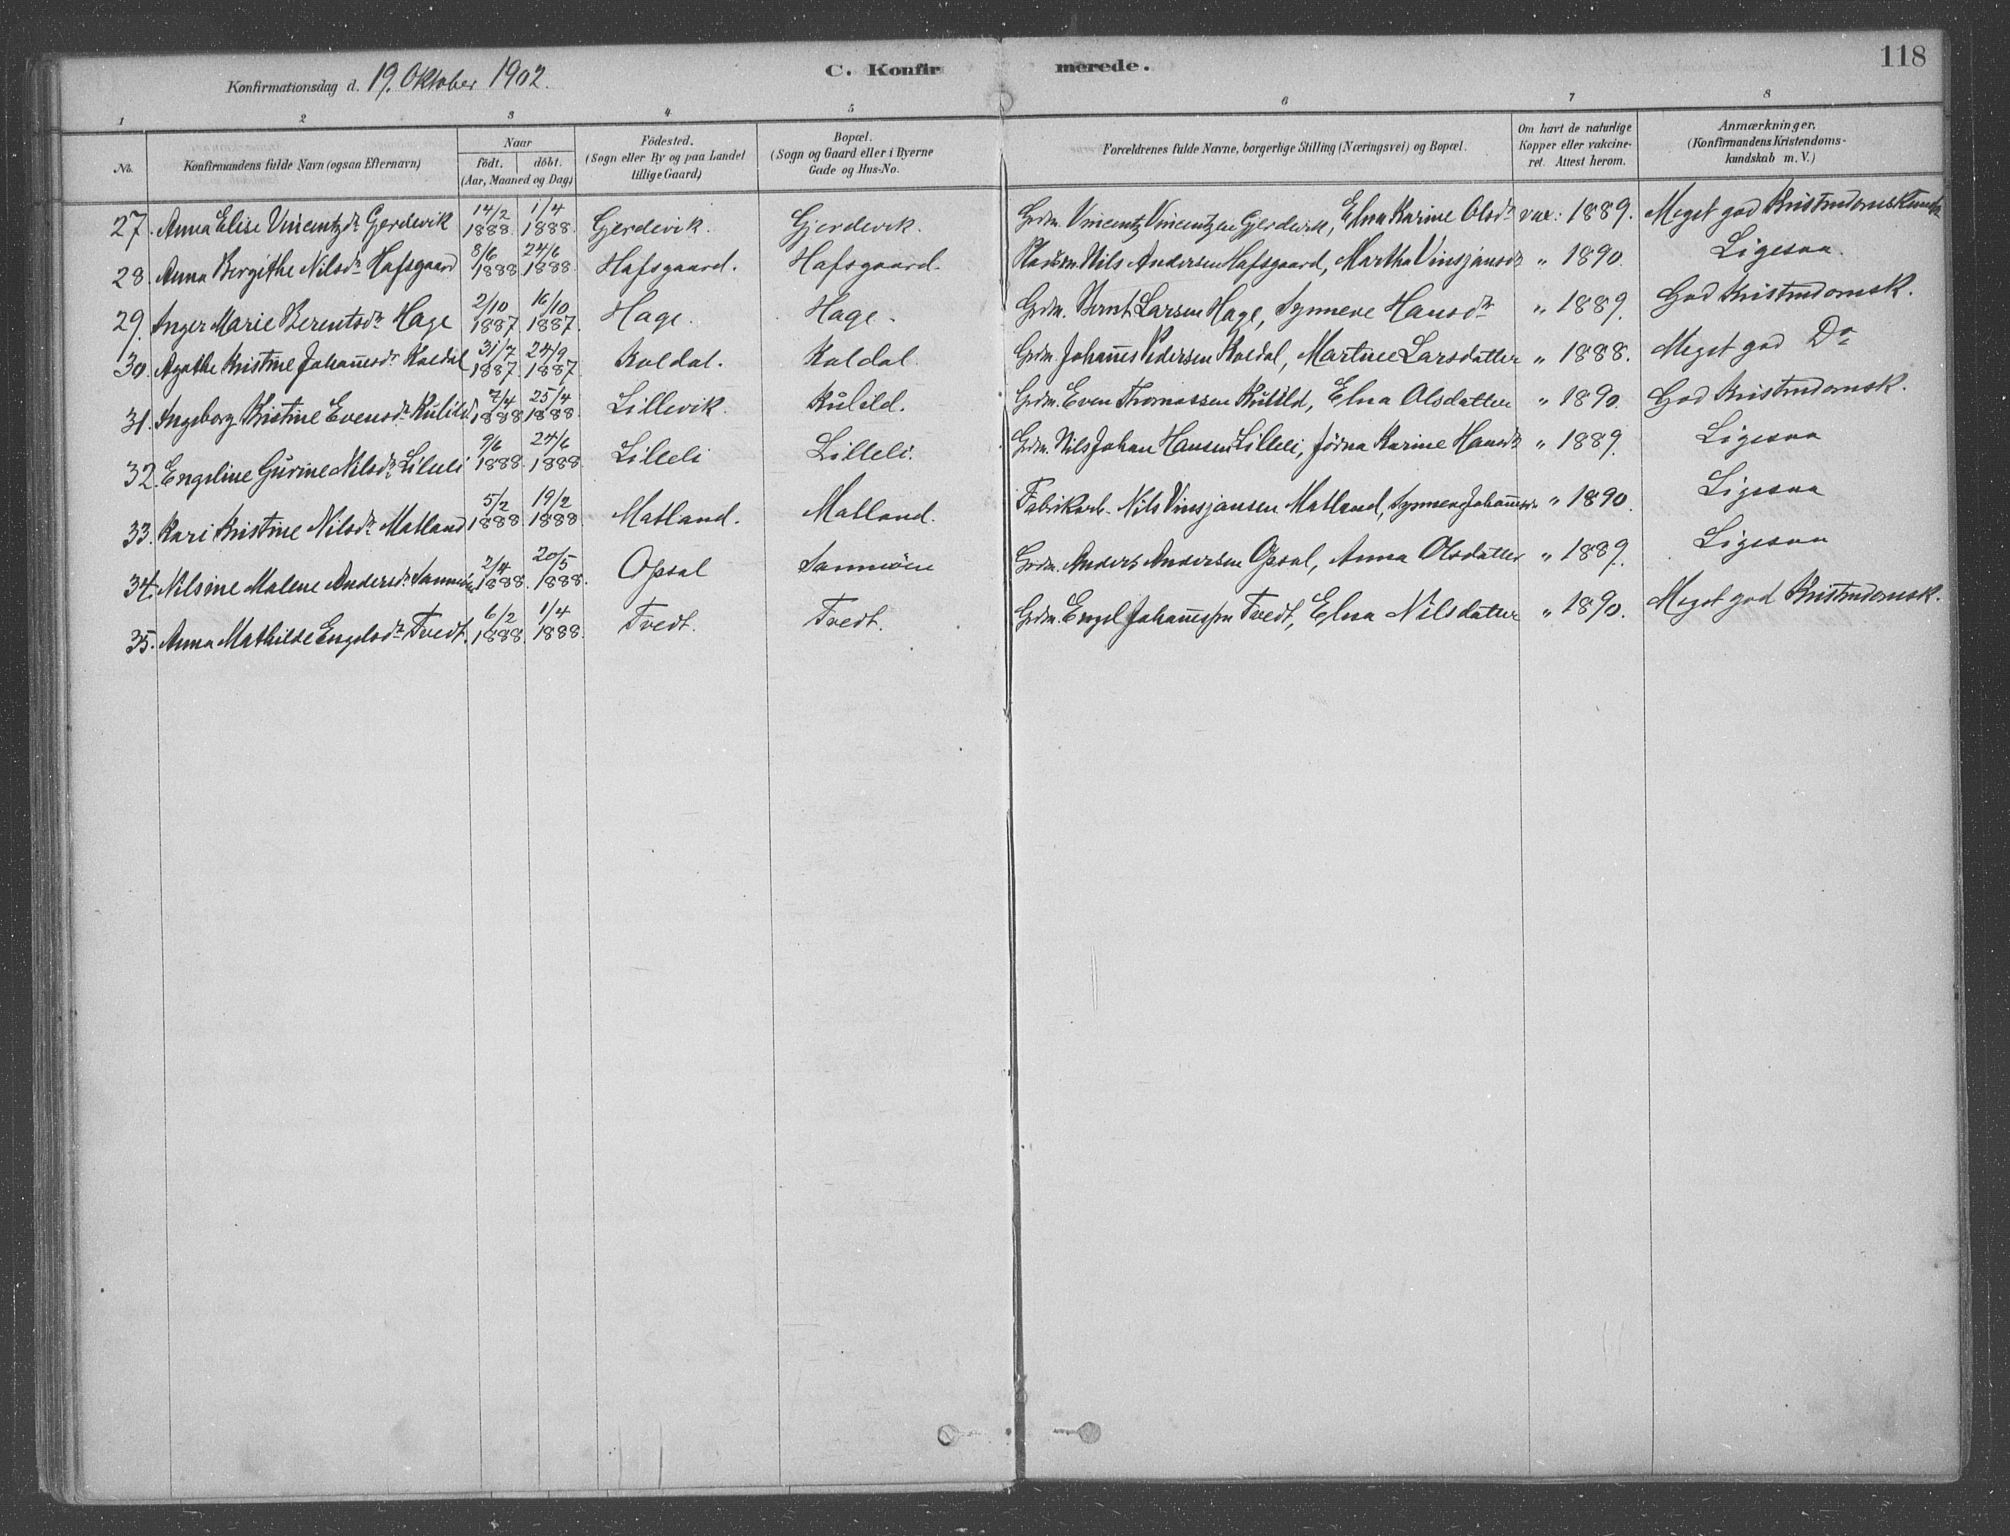 118
Konfirmationsdag d. 19. Oktober 1902.
C. Konfirmerede.
1 2 3 4 5 6 7 8
No.
Konfirmandens fulde Navn (ogsaa Efternavn)
Naar
födt. döbt.
(Aar, Maaned og Dag)
Födested.
(Sogn eller By og paa Landet
tillige Gaard)
Bopæl.
(Sogn og Gaard eller i Byerne
Gade og Hus-No.
Forældrenes fulde Navne, borgerlige Stilling (Næringsvei) og Bopæl.
Om havt de naturlige
Kopper eller vakcine-
ret. Attest herom.
Anmærkninger.
(Konfirmandens Kristendoms-
kundskab m. V.)
27. Anna Elise Vincentzdr Gjerdevik 14/2 1888. 1/4 1888. Gjerdevik. Gjerdevik. Grdm. Vincentz Vincentzen Gjerdevik, Elna Karine Olsdr vax: 1889. Meget god Kristendomskundsk
28. Anna Bergithe Nilsdr Hafsgaard 8/6 1888 24/6 1888. Hafsgaard. Hafsgaard. Nils Andersen Hafsgaard, Martha Vinsjansdr " 1890. Ligesaa.
29. Inger Marie Berentsdr Hage 2/10 1887 16/10 1887. Hage. Hage. Grdm. Bernt Larsen Hage, Synneve Hansdr " 1889. God Kristendomsk.
30. Agathe Kristine Johannsdr Koldal 31/7 1887. 24/9 1887. Koldal. Koldal. Grdm. Johannes Pedersen Koldal, Martine Larsdatter " 1888. Meget god Do
31. Ingeborg Kristine Evensdr Kulild 7/4 1888 25/4 1888. Lillevik. Kulild. Grdm. Even Thomassen Kulild, Elna Olsdatter " 1890. God Kristendomsk.
32. Engeline Gurine Nilsdr Lilleli 9/6 1888. 24/6 1888. Lilleli Lilleli. Grdm. Nils Johan Hansen Lilleli, Jørna Karine Hansdr " 1889. Ligesaa
33. Kari Kristine Nilsdr Matland 5/2 1888 19/2 1888. Matland. Matland. Fabrikarb. Nils Vinsjansen Matland, " 1890. Ligesaa
34. Nilsine Malene Andersdr 2/4 1888. 20/5 1888. Opsal Grdm. Anders Andersen Opsal, Anna Olsdatter " 1889. Ligesaa
35. Anna Mathilde Engelsdr Tvedt. 6/2 1888. 1/4 1888. Tvedt. Tvedt. Grdm. Engel Johannessen Tvedt, Elna Nilsdatter " 1890. Meget god Kristendomsk.